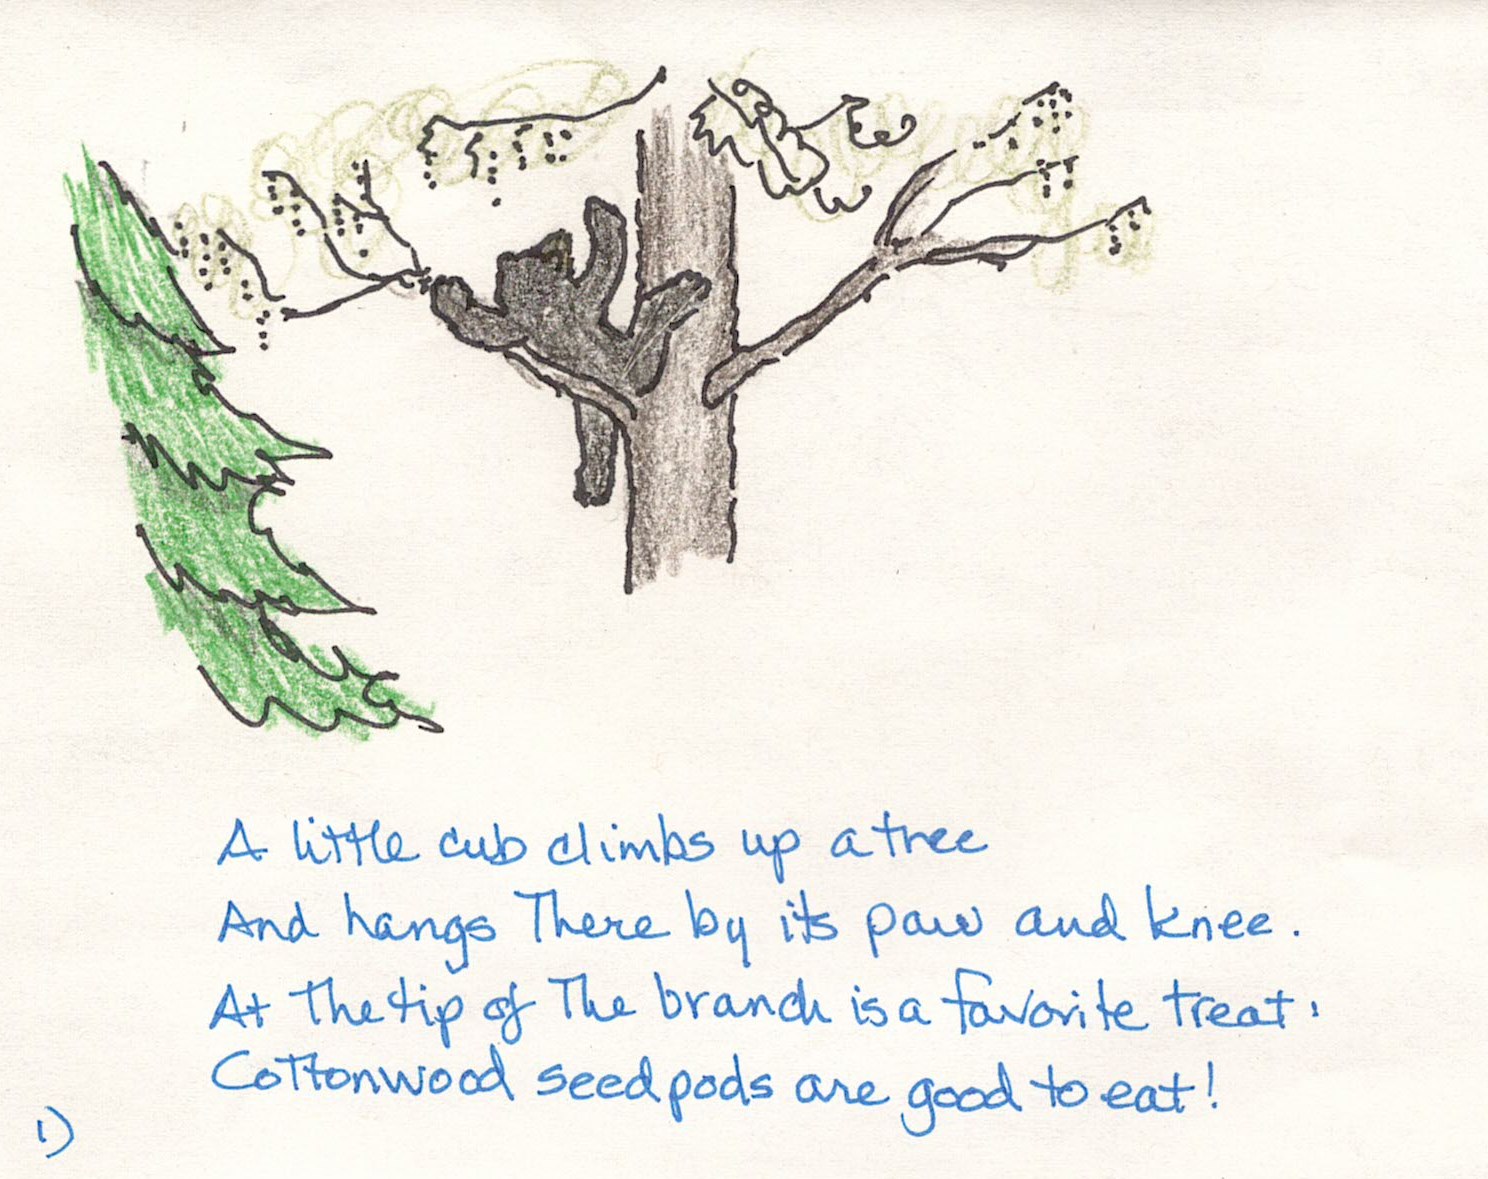 A little cub climbs up a tree
And hangs There by its paw and knee.
At The tip of The branch is a favorite treat:
Cottonwood seedpods are good to eat!
1)